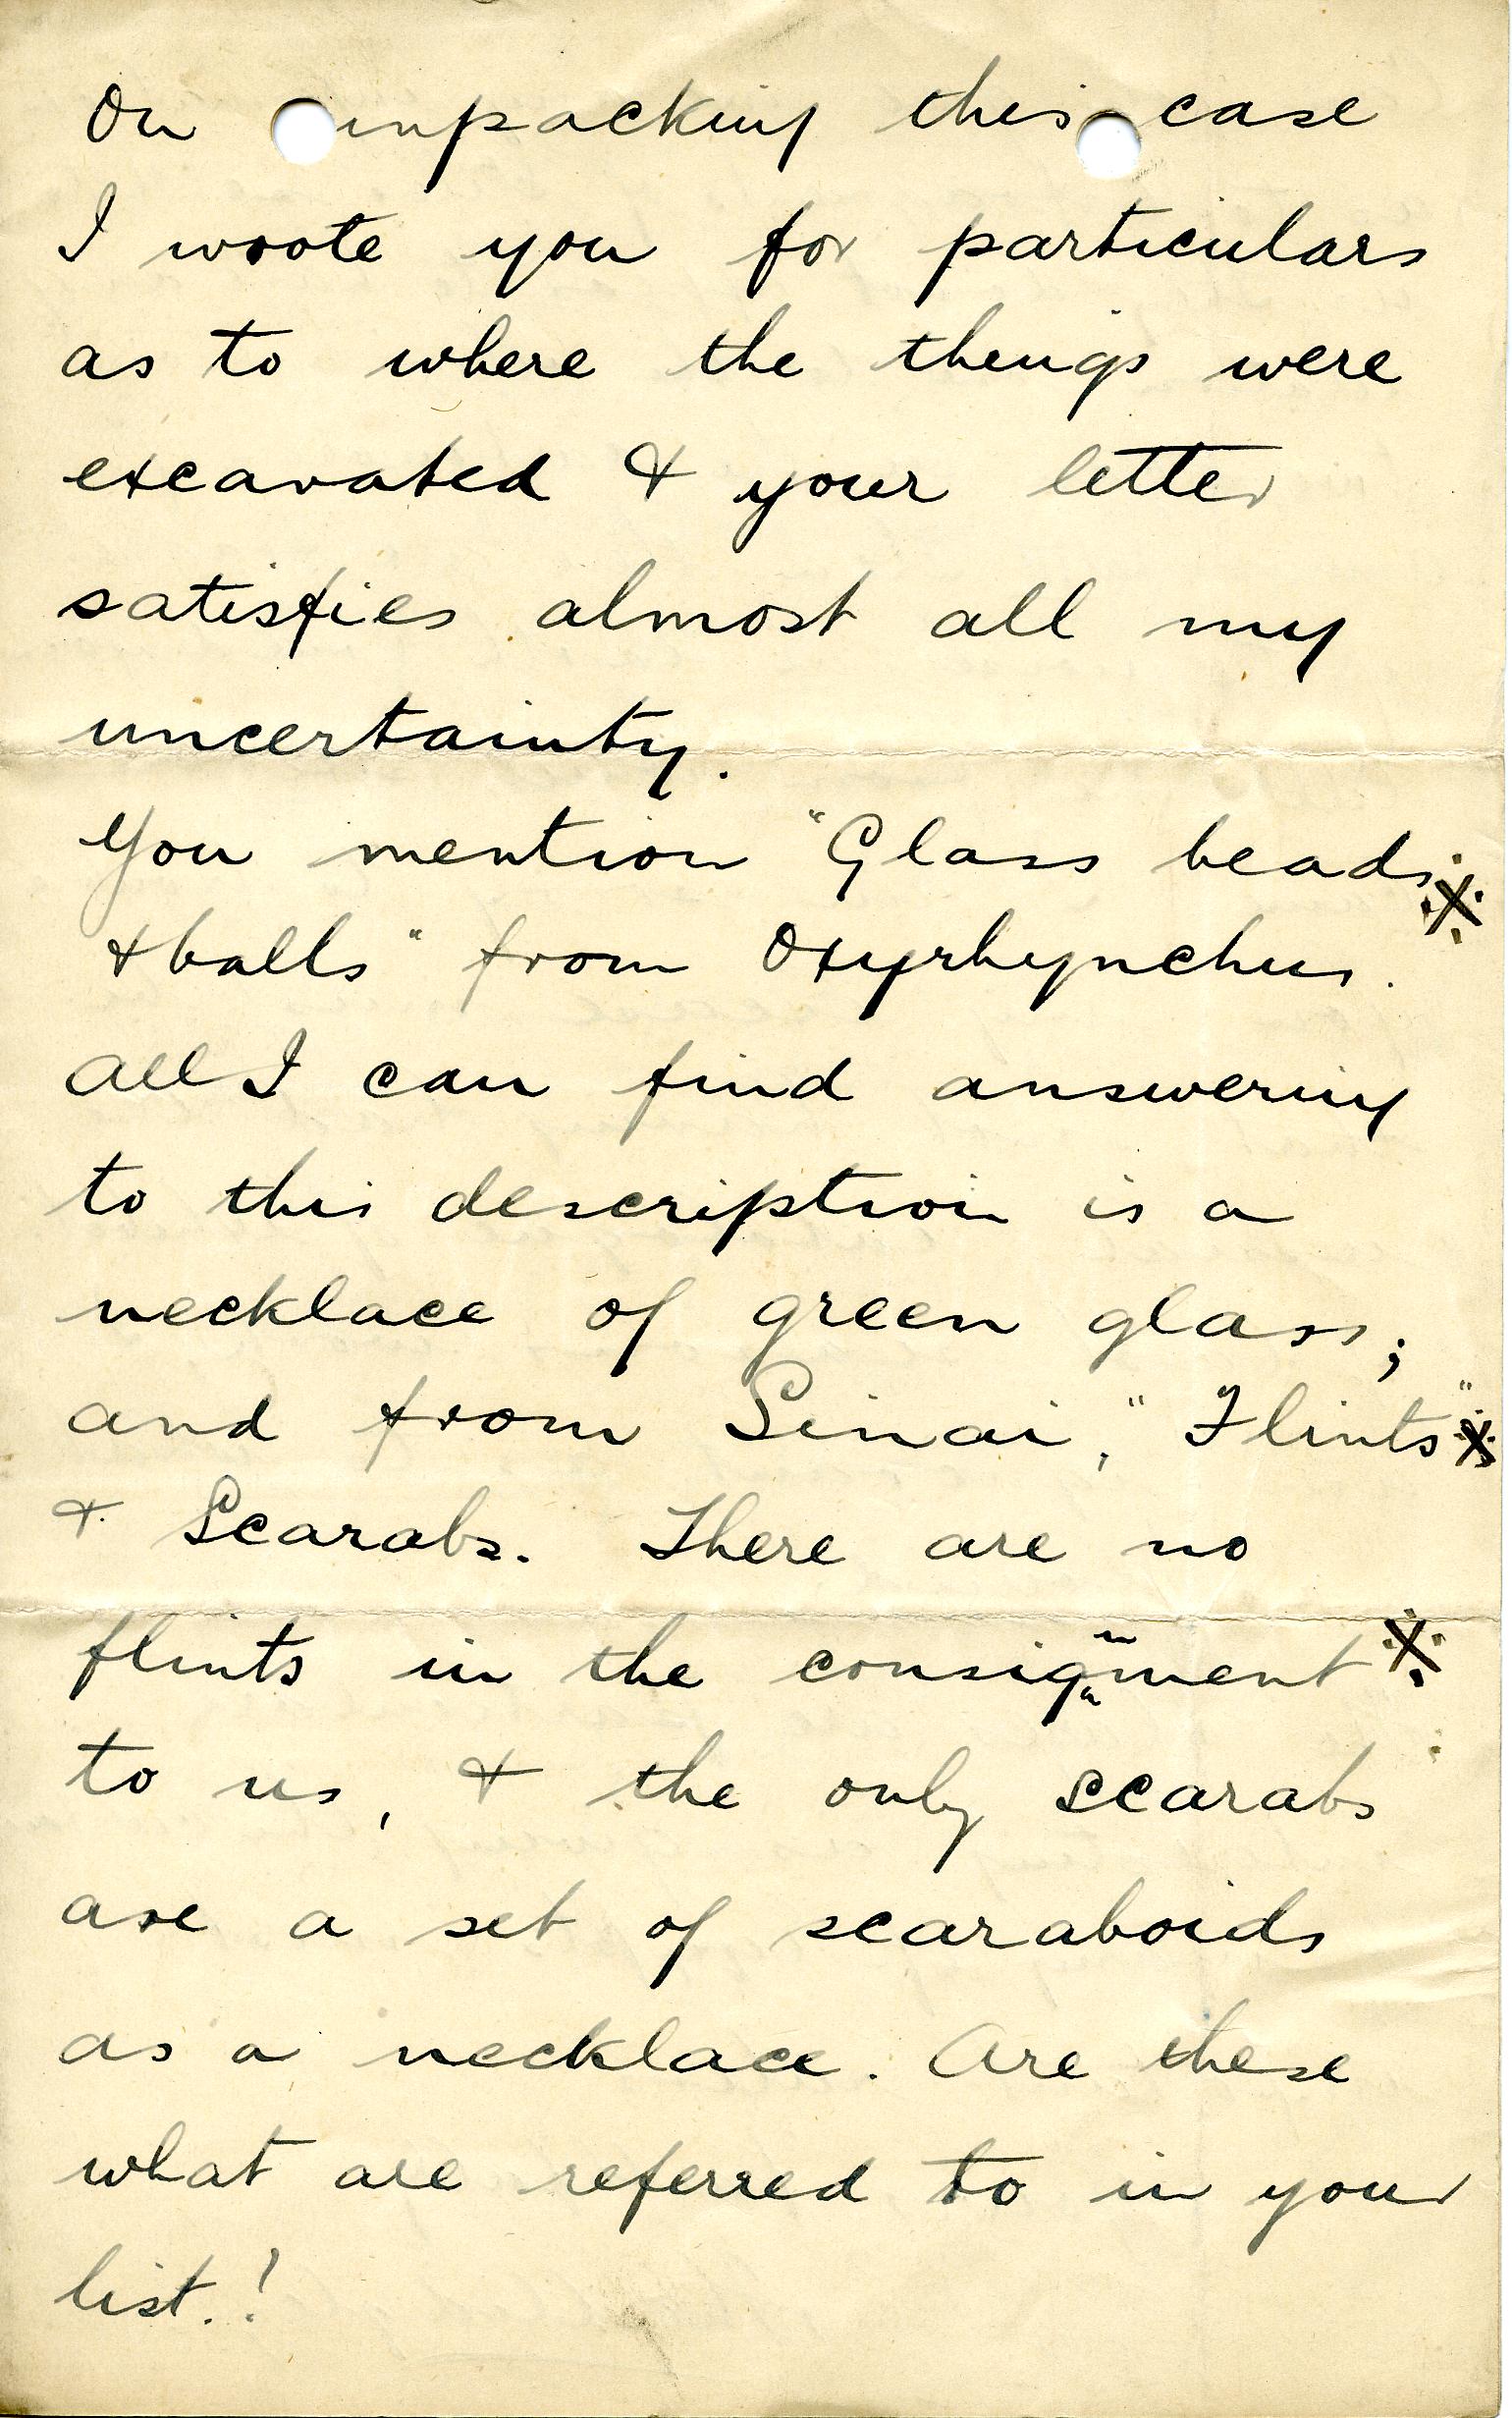 On unpacking this case
I wrote you for particulars
as to where the things were
excavated & your letter
satisfies almost all my
uncertainty.
You mention "Glass beads ※
& balls" from Oxyrhynchus.
All I can find answering
to this description is a
necklace of green glass;
and from Sinai, "Flints" ※
& Scarabs. There are no
flints in the consignment ※
to us, & the only scarabs
are a set of scaraboids
as a necklace. Are these
what are referred to in your
list.!